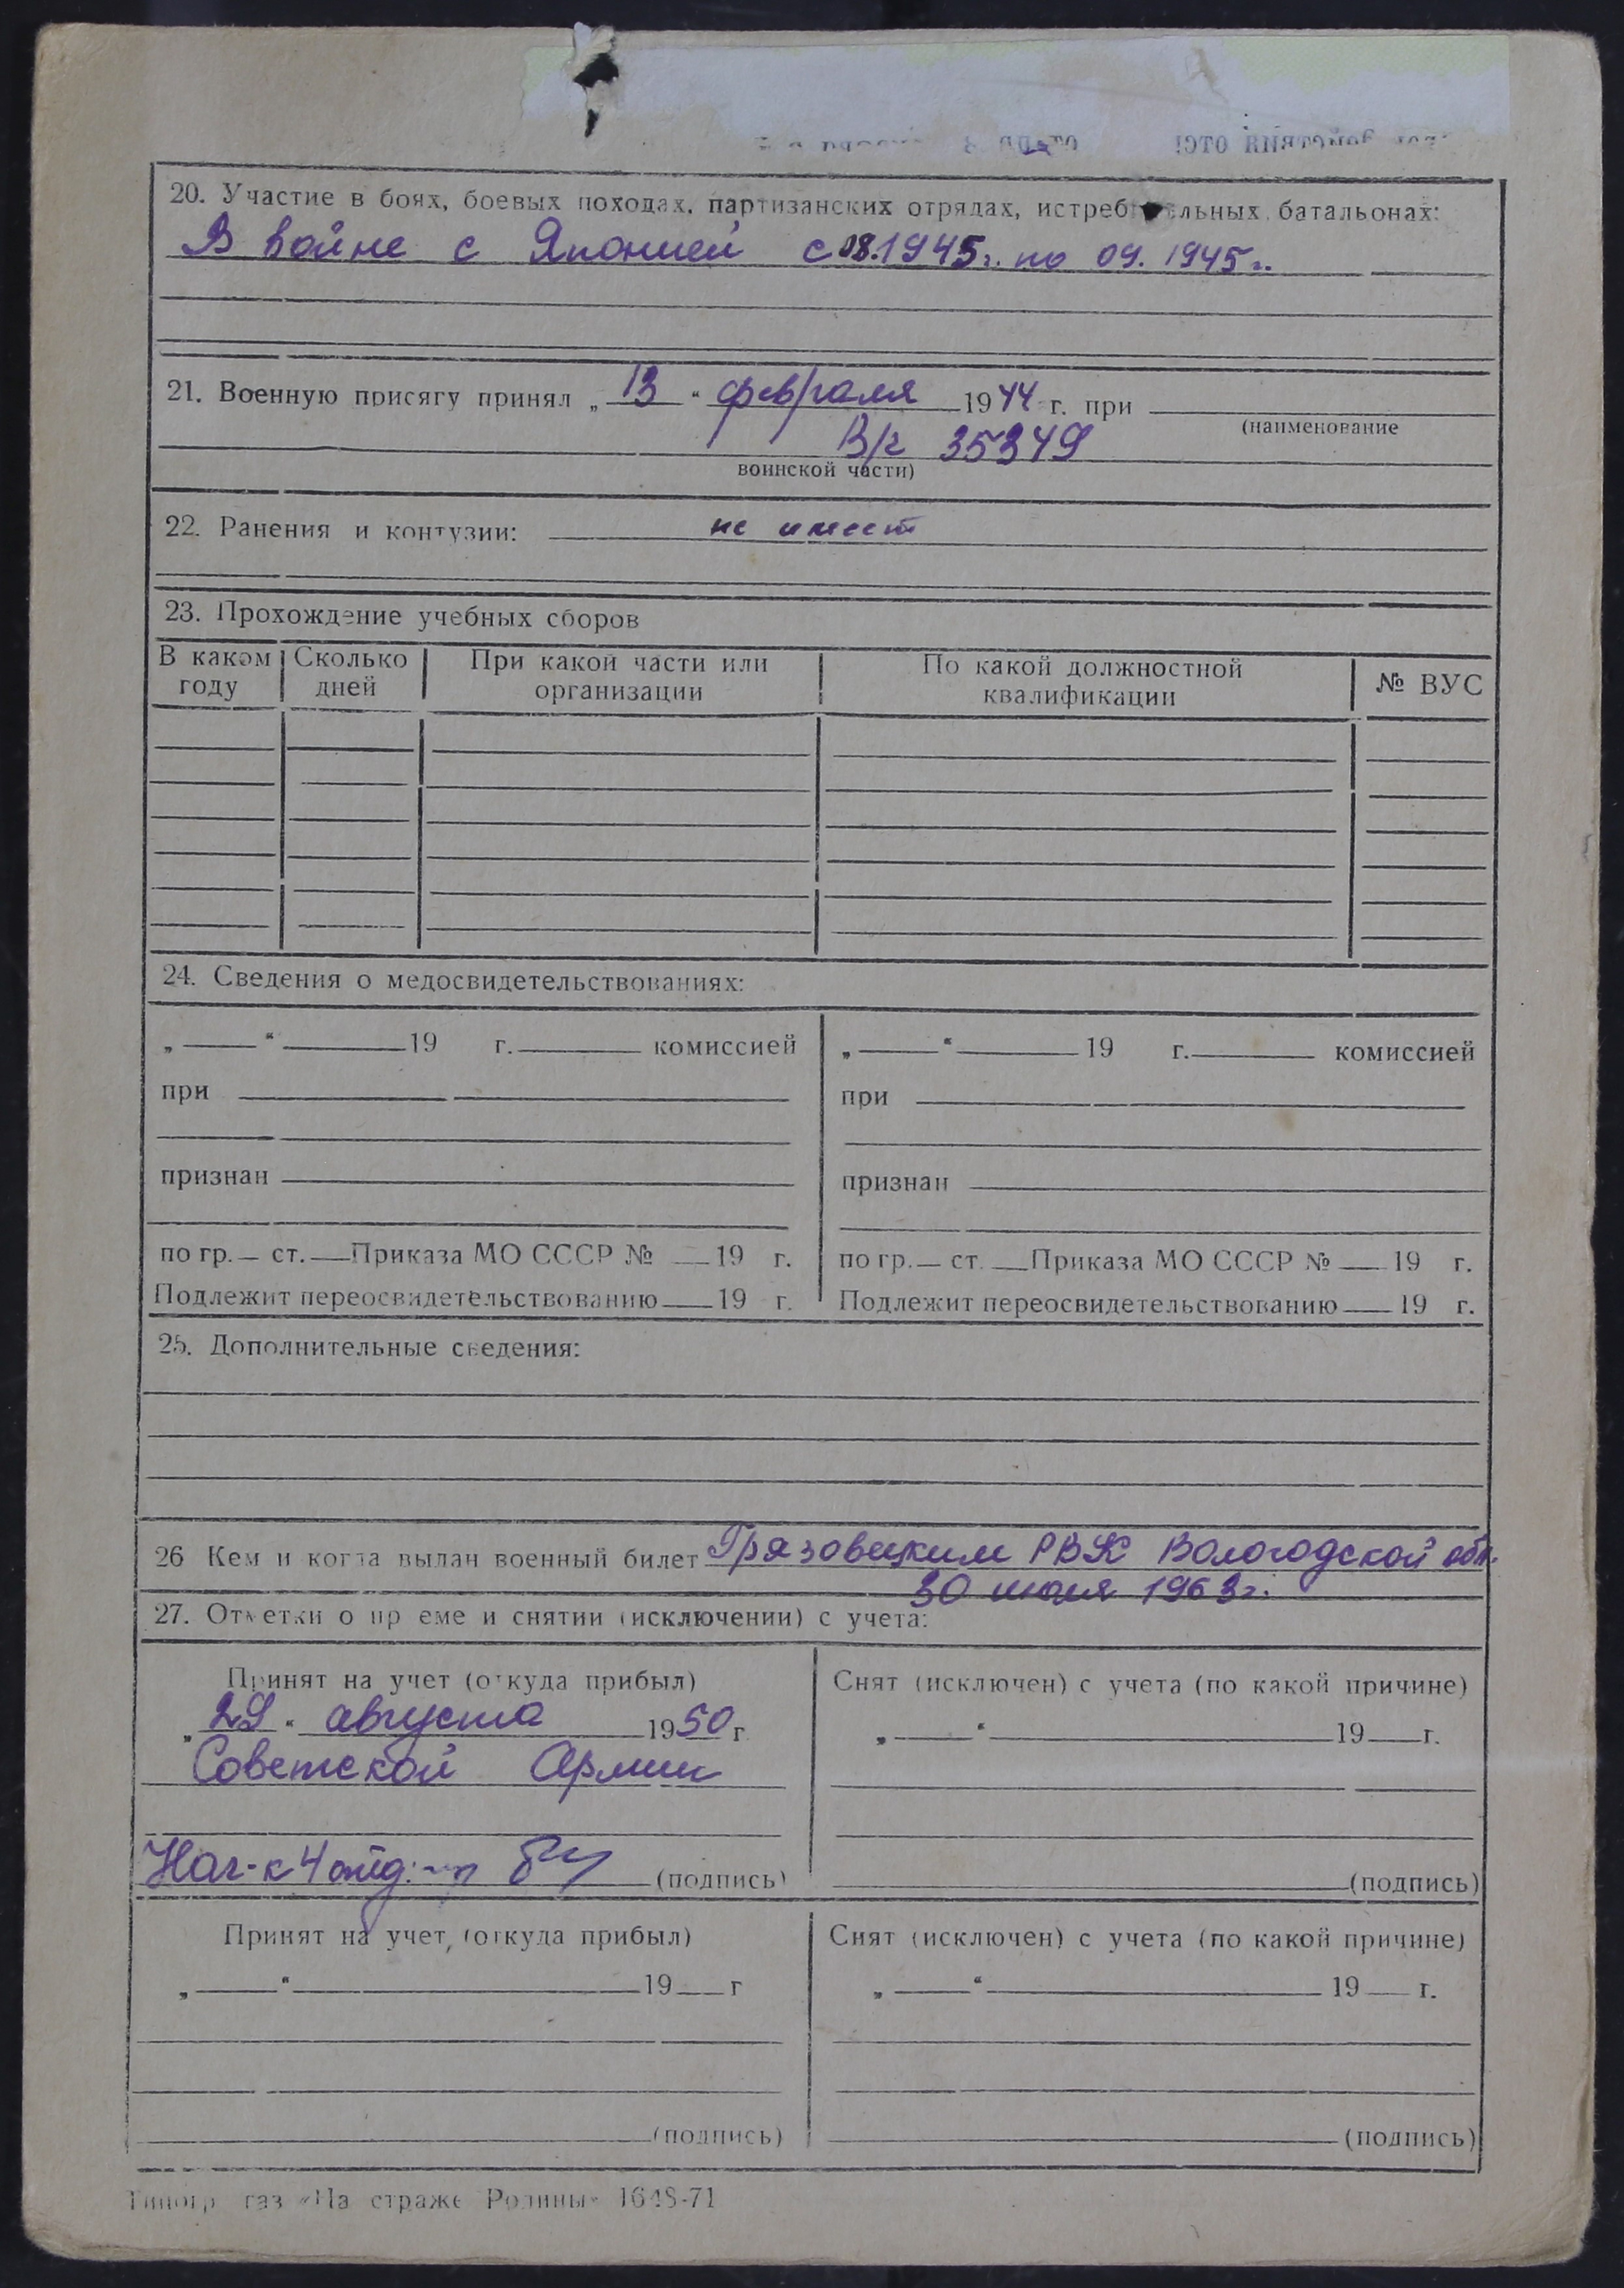 20. Участие в боях, боевых походах, партизанских отрядах, истребительных батальонах:
В войне с Японией с 08.1945г. по 09.1945г.
21. Военную присягу принял „13“ февраля 1944 г. при
(наименование
В/ч 35349
воинской части)
22. Ранения и контузии: не имеет
23. Прохождение учебных сборов
В каком году | Сколько дней | При какой части или организации | По какой должностной квалификации | № ВУС
24. Сведения о медосвидетельствованиях:
„ “ 19 г. комиссией
при
признан
по гр. ст. Приказа МО СССР № 19 г.
Подлежит переосвидетельствованию 19 г.
„ “ 19 г. комиссией
при
признан
по гр. ст. Приказа МО СССР № 19 г.
Подлежит переосвидетельствованию 19 г.
25. Дополнительные сведения:
26 Кем и когда выдан военный билет Грязовецким РВК Вологодской обл.
30 июля 1963г.
27. Отметки о приеме и снятии (исключении) с учета:
Принят на учет (откуда прибыл)
„29“ августа 1950 г
Советской Армии
Нач-к 4 отд: (подпись)
Снят (исключен) с учета (по какой причине)
„ “ 19 г.
(подпись)
Принят на учет, (откуда прибыл)
„ “ 19 г
(подпись)
Снят (исключен) с учета (по какой причине)
„ “ 19 г.
(подпись)
Типогр. газ «На страже Родины» 1648-71